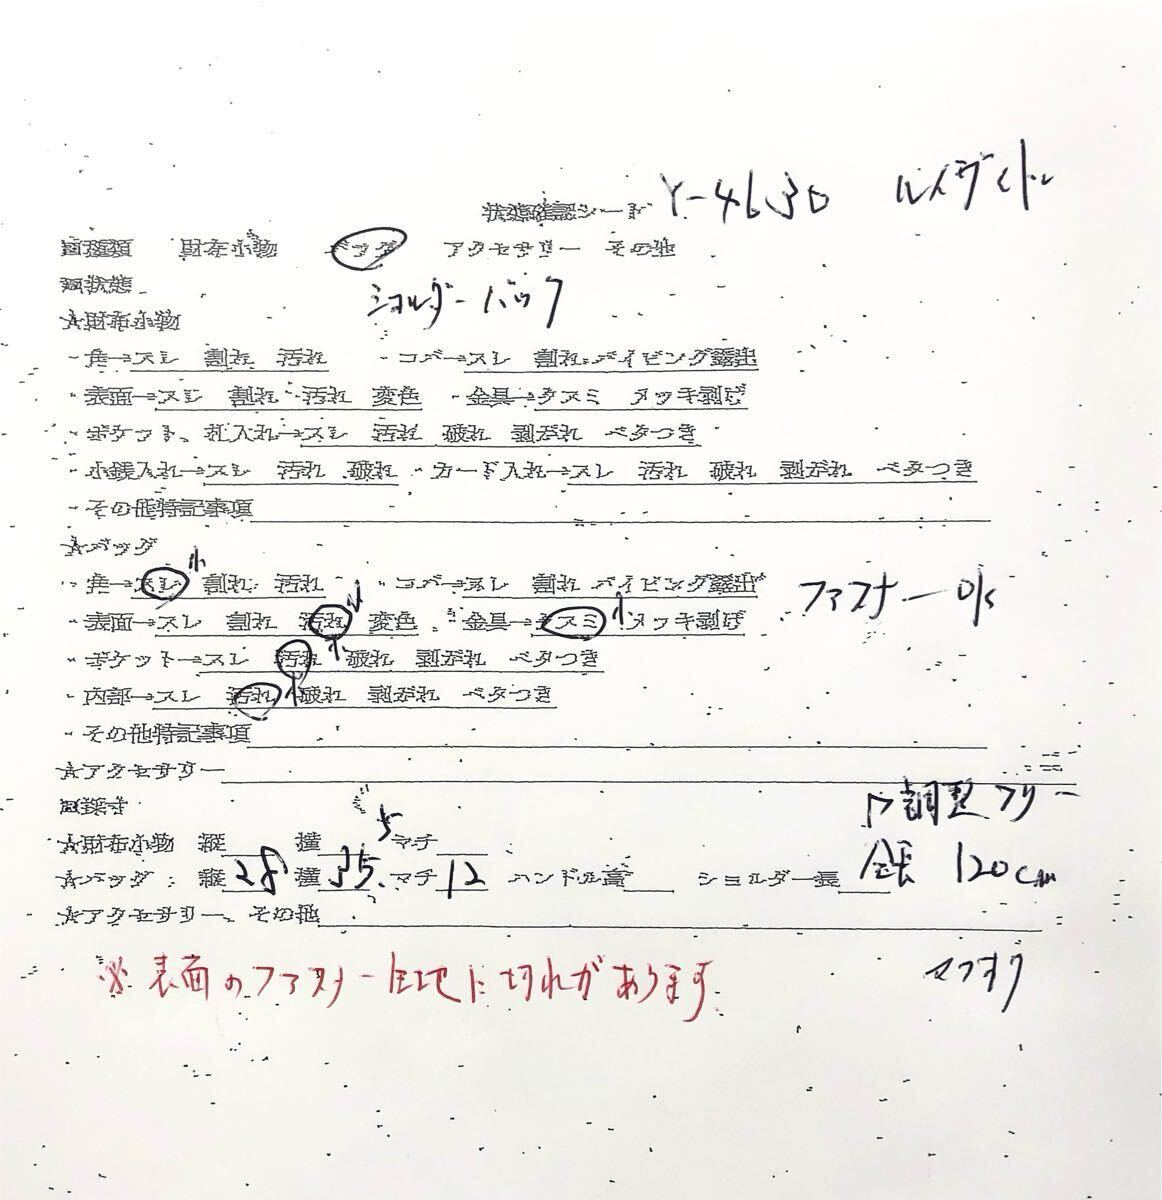 状態確認シート Y-4630 ルイヴィトン
□種類 財布小物 バッグ アクセサリー その他
□状態
ショルダーバック
★財布小物
・角→スレ 割れ 汚れ ・コバ→スレ 割れ パイピング露出
・表面→スレ 割れ 汚れ 変色 ・金具→クスミ メッキ剥げ
・ポケット、札入れ→スレ 汚れ 破れ 剥がれ ベタつき
・小銭入れ→スレ 汚れ 破れ ・カード入れ→スレ 汚れ 破れ 剥がれ ベタつき
・その他特記事項
★バッグ
・角→スレ 小 割れ 汚れ ・コバ→スレ 割れ パイピング露出 ファスナーO/K
・表面→スレ 割れ 汚れ 小 変色 ・金具→クスミ 小 メッキ剥げ
・ポケット→スレ 汚れ 小 破れ 剥がれ ベタつき
・内部→スレ 汚れ 小 破れ 剥がれ ベタつき
・その他特記事項
★アクセサリー
□採寸 調整フリー
★財布小物 縦 横 マチ
★バッグ：縦 28 横 35.5 マチ 12 ハンドル高 ショルダー長 全長 120cm
★アクセサリー、その他
※表面のファスナー生地に切れがあります